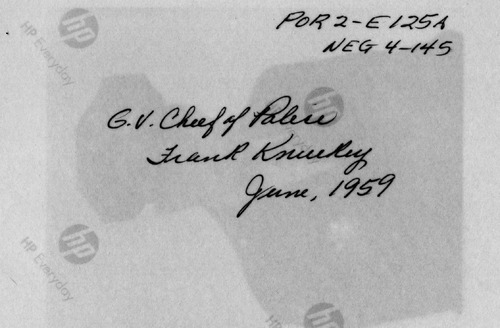 POR 2-E125A
NEG 4-145
G.V. Chief of Police
Frank
June, 1959
hp
HP Everyday
hp
HP Everyday
hp
hp